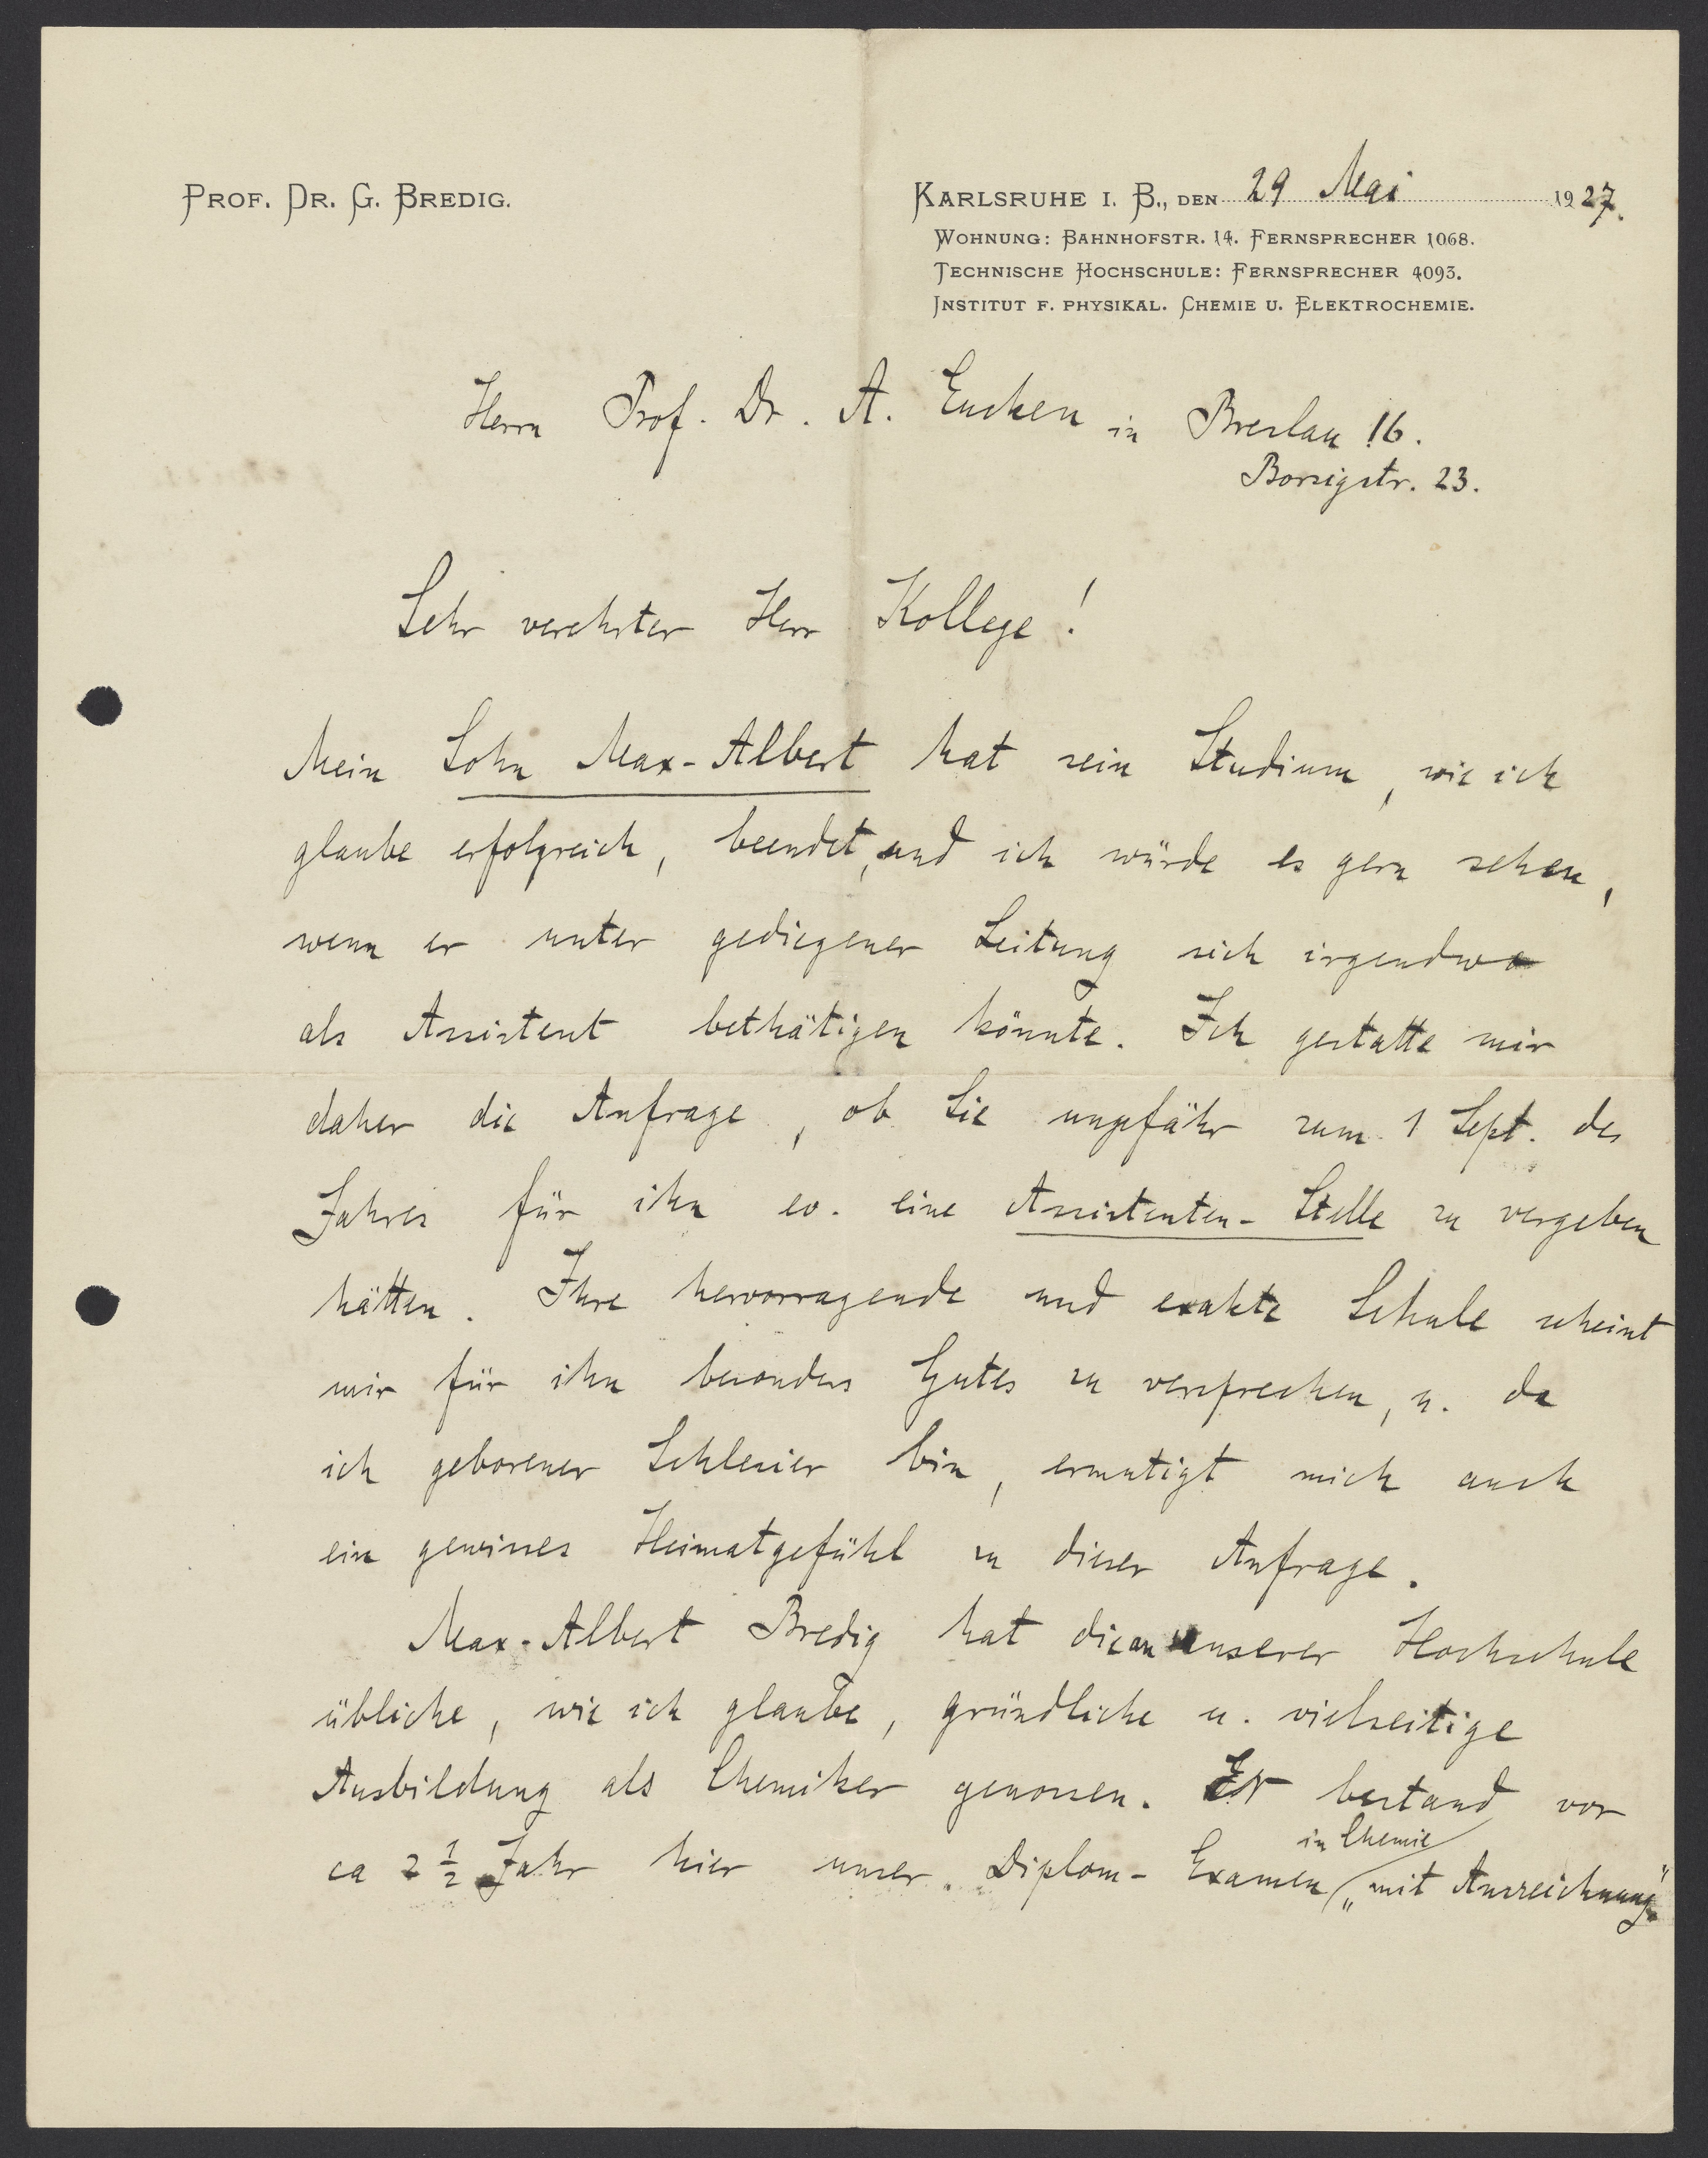 PROF. DR. G. BREDIG.
KARLSRUHE I. B., DEN 29 Mai 1927.
WOHNUNG: BAHNHOFSTR. 14. FERNSPRECHER 1068.
TECHNISCHE HOCHSCHULE: FERNSPRECHER 4093.
INSTITUT F. PHYSIKAL. CHEMIE U. ELEKTROCHEMIE.
Herrn Prof. Dr. A. Eucken in Breslau 16.
Borsigstr. 23.
Sehr verehrter Herr Kollege!
Mein Sohn Max-Albert hat sein Studium, wie ich
glaube erfolgreich, beendet, und ich würde es gern sehen,
wenn er unter gediegener Leitung sich irgendwo
als Assistent bethätigen könnte. Ich gestatte mir
daher die Anfrage, ob Sie ungefähr zum 1 Sept. des
Jahres für ihn ev. eine Assistenten-Stelle zu vergeben
hätten. Ihre hervorragende und exakte Schule scheint
mir für ihn besonders Gutes zu versprechen, u. da
ich geborener Schlesier bin, ermutigt mich auch
ein gewisses Heimatgefühl zu dieser Anfrage.
Max-Albert Bredig hat die an unserer Hochschule
übliche, wie ich glaube, gründliche u. vielseitige
Ausbildung als Chemiker genossen. Er bestand vor
in Chemie
ca 2 1/2 Jahr hier unser Diplom-Examen „mit Auszeichnung".